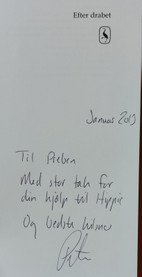 Efter drabet
Januar 2013
Til Preben
Med stor tak for
din hjælp til Hippie
Og bedste hilsner